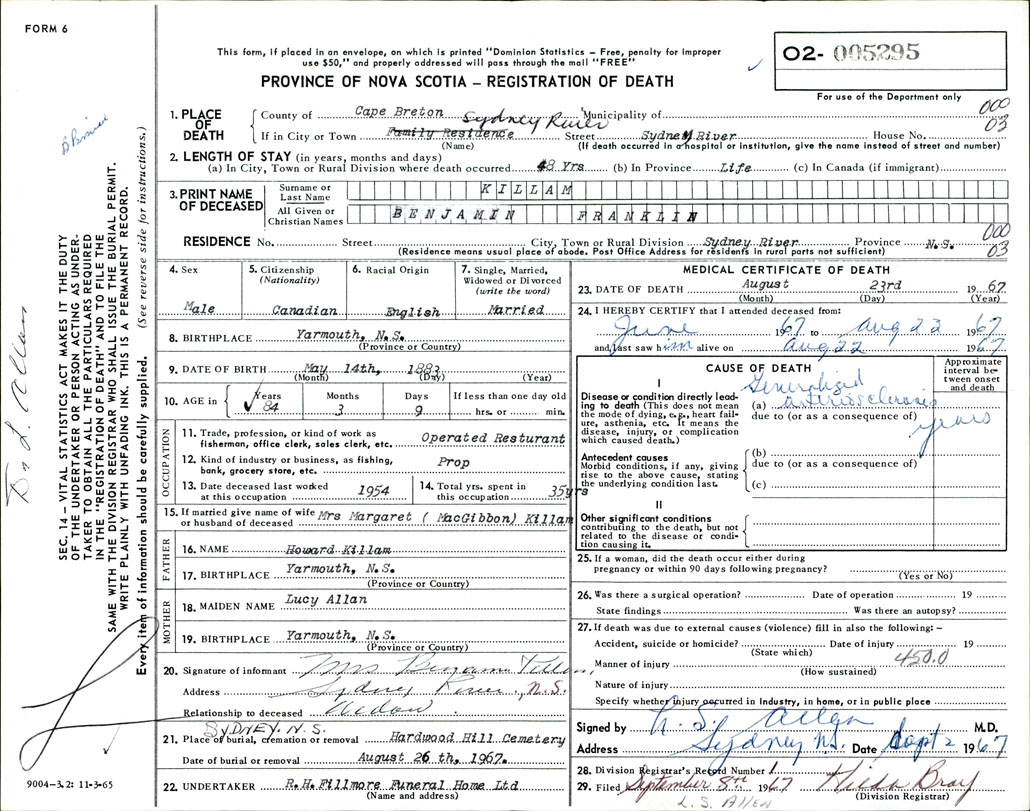 FORM 6
This form, if placed in an envelope, on which is printed "Dominion Statistics – Free, penalty for improper
use $50," and properly addressed will pass through the mail "FREE"
PROVINCE OF NOVA SCOTIA – REGISTRATION OF DEATH
O2- 005295
For use of the Department only
000
03
1. PLACE OF DEATH
County of Cape Breton Municipality of
Sydney River
If in City or Town Family Residence Street Sydney River House No.
(Name) (If death occurred in a hospital or institution, give the name instead of street and number)
2. LENGTH OF STAY (in years, months and days)
(a) In City, Town or Rural Division where death occurred 48 Yrs (b) In Province Life (c) In Canada (if immigrant)
3. PRINT NAME OF DECEASED
Surname or Last Name KILLAM
All Given or Christian Names BENJAMIN FRANKLIN
000
03
RESIDENCE No. Street City, Town or Rural Division Sydney River Province N.S.
(Residence means usual place of abode. Post Office Address for residents in rural parts not sufficient)
4. Sex Male
5. Citizenship (Nationality) Canadian
6. Racial Origin English
7. Single, Married, Widowed or Divorced (write the word) Married
8. BIRTHPLACE Yarmouth, N.S.
(Province or Country)
9. DATE OF BIRTH May 14th, 1883
(Month) (Day) (Year)
10. AGE in Years 84 Months 3 Days 9 If less than one day old hrs. or min.
OCCUPATION
11. Trade, profession, or kind of work as fisherman, office clerk, sales clerk, etc. Operated Resturant
12. Kind of industry or business, as fishing, bank, grocery store, etc. Prop
13. Date deceased last worked at this occupation 1954
14. Total yrs. spent in this occupation 35yrs
15. If married give name of wife or husband of deceased Mrs Margaret ( MacGibbon) Killam
FATHER
16. NAME Howard Killam
17. BIRTHPLACE Yarmouth, N.S.
(Province or Country)
MOTHER
18. MAIDEN NAME Lucy Allan
19. BIRTHPLACE Yarmouth, N.S.
(Province or Country)
20. Signature of informant Mrs Benjamin Killam
Address Sydney River, N.S.
Relationship to deceased Widow
SYDNEY. N.S.
21. Place of burial, cremation or removal Hardwood Hill Cemetery
Date of burial or removal August 26 th, 1967.
22. UNDERTAKER R.H.Fillmore Funeral Home Ltd
(Name and address)
MEDICAL CERTIFICATE OF DEATH
23. DATE OF DEATH August 23rd 1967
(Month) (Day) (Year)
24. I HEREBY CERTIFY that I attended deceased from:
June 1967 to Aug 22 1967
and last saw him alive on Aug 22 1967
CAUSE OF DEATH
Approximate interval between onset and death
I
Disease or condition directly leading to death (This does not mean the mode of dying, e.g., heart failure, asthenia, etc. It means the disease, injury, or complication which caused death.)
(a) Generalized arteriosclerosis
due to (or as a consequence of)
years
Antecedent causes
Morbid conditions, if any, giving rise to the above cause, stating the underlying condition last.
(b)
due to (or as a consequence of)
(c)
II
Other significant conditions
contributing to the death, but not related to the disease or condition causing it.
25. If a woman, did the death occur either during
pregnancy or within 90 days following pregnancy?
(Yes or No)
26. Was there a surgical operation? Date of operation 19
State findings Was there an autopsy?
27. If death was due to external causes (violence) fill in also the following: –
Accident, suicide or homicide? Date of injury 19
(State which)
Manner of injury 450.0
(How sustained)
Nature of injury
Specify whether injury occurred in industry, in home, or in public place
Signed by L. S. Allen M.D.
Address Sydney N.S. Date Sept 2 1967
28. Division Registrar's Record Number 1
29. Filed September 8th 1967 Hilda Bray
(Division Registrar)
L. S. Allen
SEC. 14 – VITAL STATISTICS ACT MAKES IT THE DUTY
OF THE UNDERTAKER OR PERSON ACTING AS UNDERTAKER TO OBTAIN ALL THE PARTICULARS REQUIRED
IN THE "REGISTRATION OF DEATH" AND TO FILE THE
SAME WITH THE DIVISION REGISTRAR WHO SHALL ISSUE THE BURIAL PERMIT.
WRITE PLAINLY WITH UNFADING INK. THIS IS A PERMANENT RECORD.
Every item of information should be carefully supplied. (See reverse side for instructions.)
Dr L. Allan
9004-3.2: 11-3-65